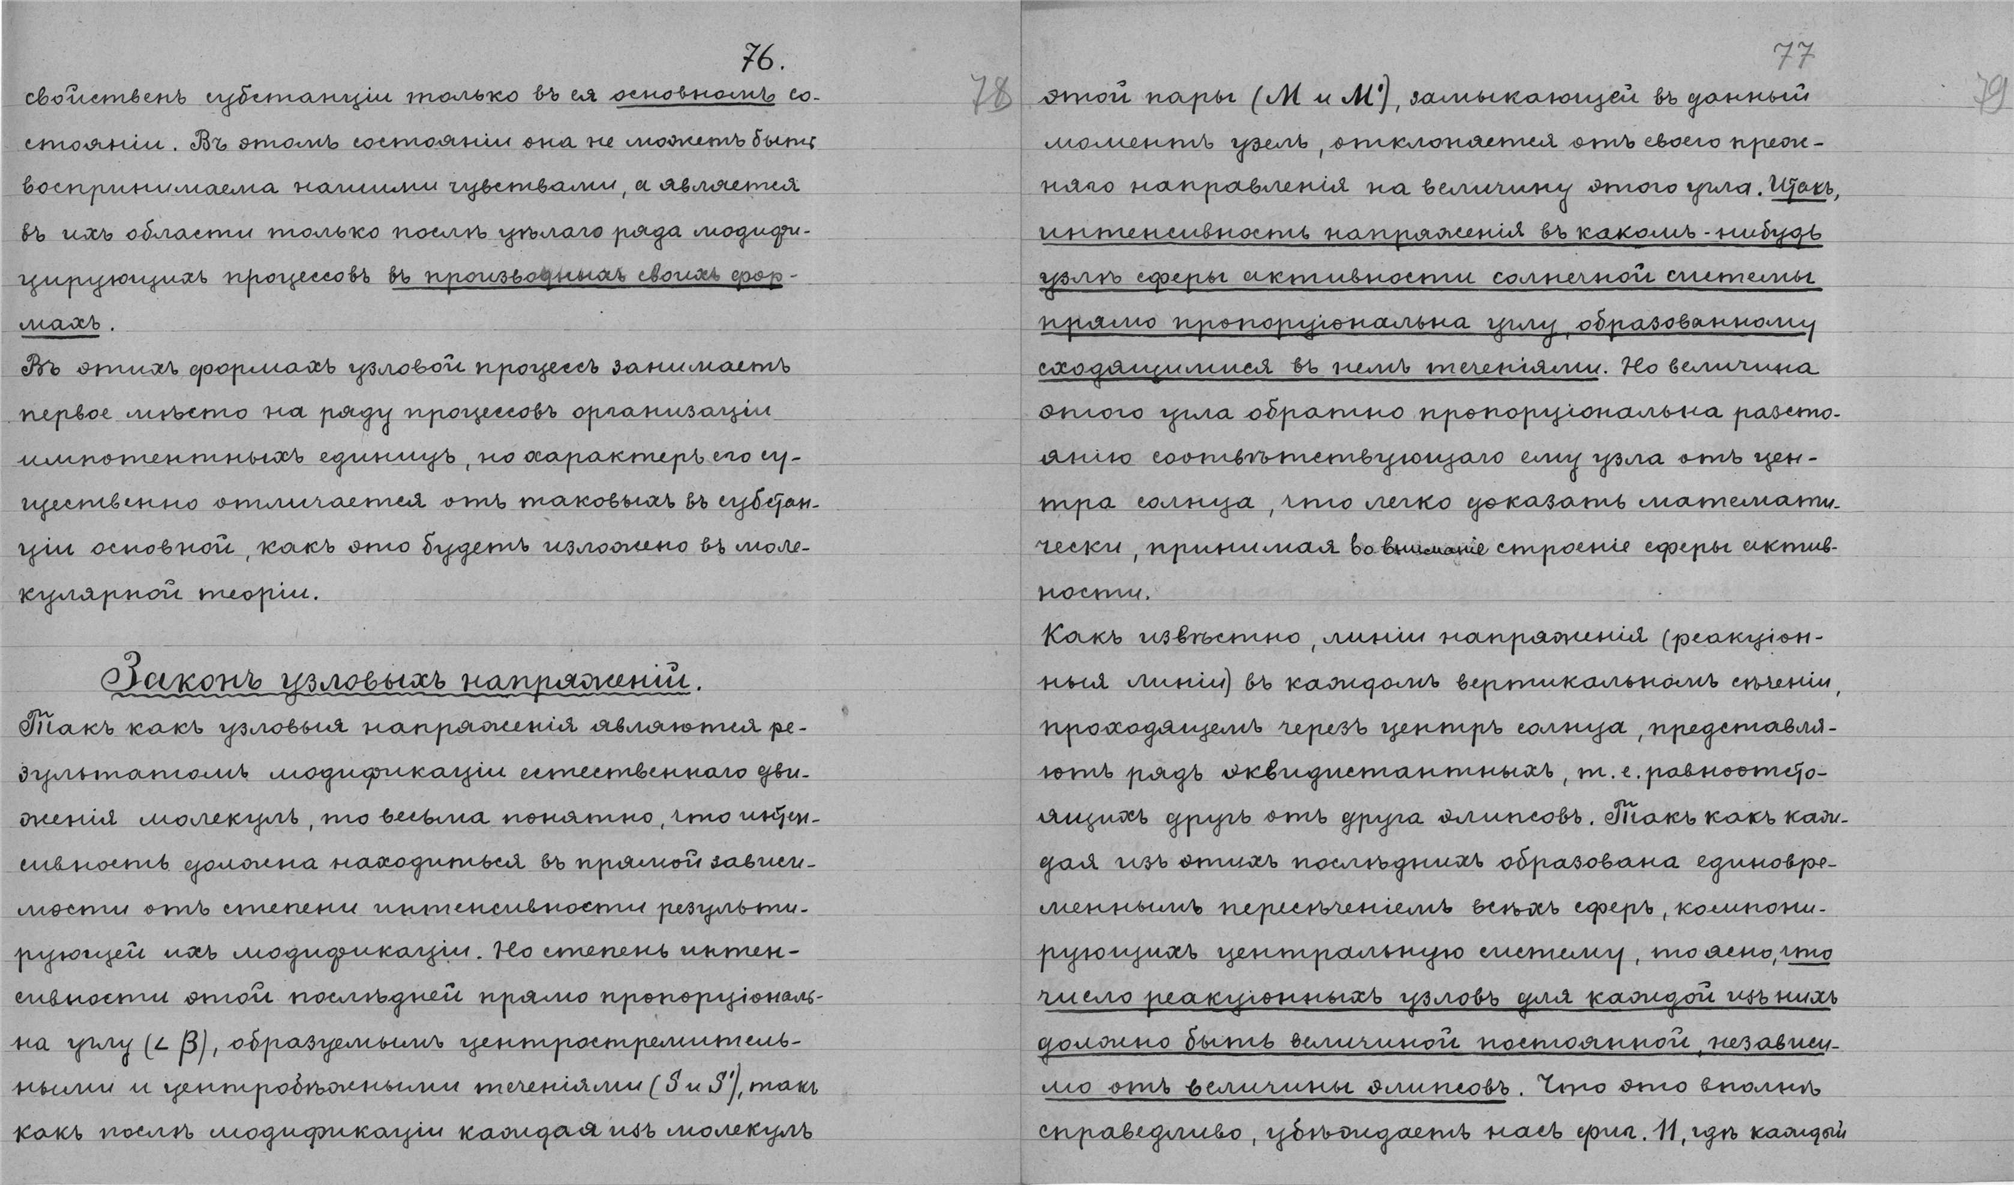 76.
78
свойственъ субстанціи только въ ея основномъ со-
стояніи. Въ этомъ состояніи она не можетъ быть
воспринимаема нашими чувствами, а является
въ ихъ области только послѣ цѣлаго ряда модифи-
цирующихъ процессовъ въ производныхъ своихъ фор-
махъ.
Въ этихъ формахъ узловой процессъ занимаетъ
первое мѣсто на ряду процессовъ организаціи
импотентныхъ единицъ, но характеръ его су-
щественно отличается отъ таковыхъ въ субстан-
ціи основной, какъ это будетъ изложено въ моле-
кулярной теоріи.
Законъ узловыхъ напряженій.
Такъ какъ узловыя напряженія являются ре-
зультатомъ модификаціи естественнаго дви-
женія молекулъ, то весьма понятно, что интен-
сивность должна находиться въ прямой зависи-
мости отъ степени интенсивности результи-
рующей ихъ модификаціи. Но степень интен-
сивности этой послѣдней прямо пропорціональ-
на углу (∠ β), образуемымъ центростремитель-
ными и центробѣжными теченіями (S и S'), такъ
какъ послѣ модификаціи каждая изъ молекулъ
77
79
этой пары (М и М'), замыкающей въ данный
моментъ узелъ, отклоняется отъ своего преж-
няго направленія на величину этого угла. Итакъ,
интенсивность напряженія въ какомъ-нибудь
узлѣ сферы активности солнечной системы
прямо пропорціональна углу, образованному
сходящимися въ немъ теченіями. Но величина
этого угла обратно пропорціональна разсто-
янію соотвѣтствующаго ему узла отъ цен-
тра солнца, что легко доказать математи-
чески, принимая во вниманіе строеніе сферы актив-
ности.
Какъ извѣстно, линіи напряженія (реакціон-
ныя линіи) въ каждомъ вертикальномъ сѣченіи,
проходящемъ черезъ центръ солнца, представля-
ютъ рядъ эквидистантныхъ, т. е. равноотсто-
ящихъ другъ отъ друга элипсовъ. Такъ какъ каж-
дая изъ этихъ послѣднихъ образована единовре-
меннымъ пересѣченіемъ всѣхъ сферъ, компони-
рующихъ центральную систему, то ясно, что
число реакціонныхъ узловъ для каждой изъ нихъ
должно быть величиной постоянной, независи-
мо отъ величины элипсовъ. Что это вполнѣ
справедливо, убѣждаетъ насъ фиг. 11, гдѣ каждый